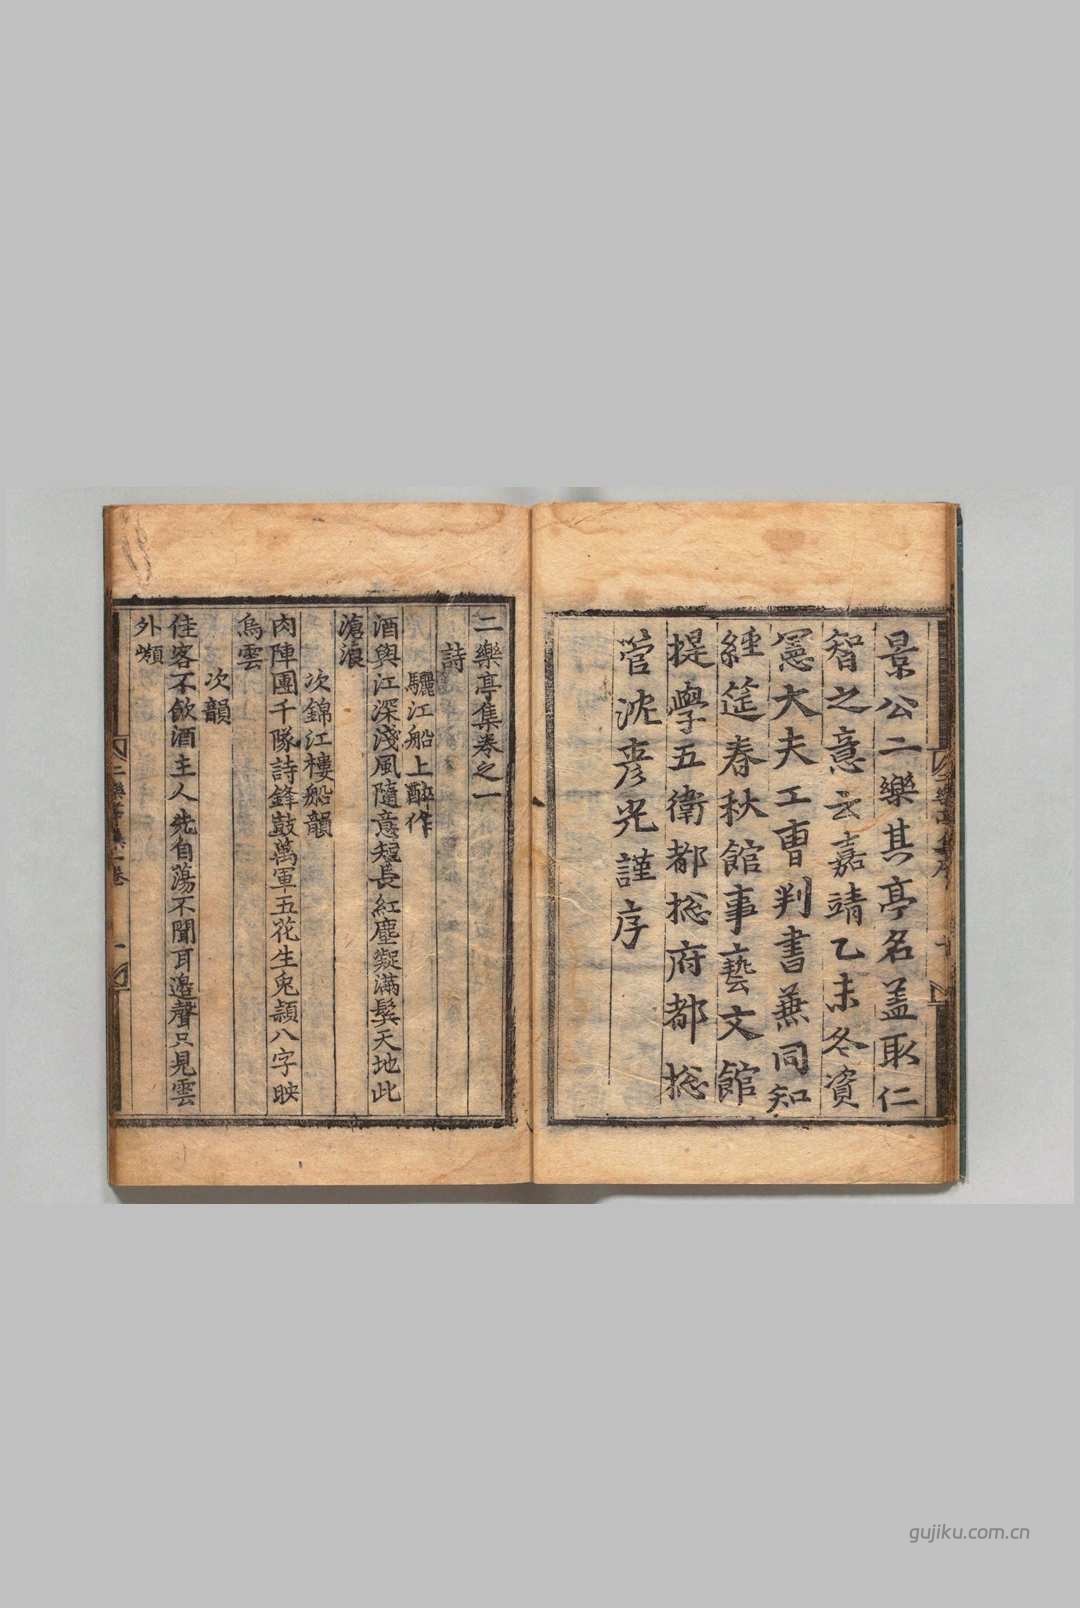 景公二樂其亭名盖取仁
智之意云嘉靖乙未冬資
憲大夫工曹判書兼同知
經筵春秋館事藝文館
提學五衛都揔府都揔
管沈彦光謹序
二樂亭集卷之一
詩
驪江船上醉作
酒與江深淺風隨意短長紅塵凝滿鬂天地此
滄浪
次錦江樓船韻
肉陣團千隊詩鋒鼓萬軍五花生兎潁八字映
烏雲
次韻
佳客不飲酒主人先自蕩不聞耳邉聲只見雲
外嶺
gujiku.com.cn